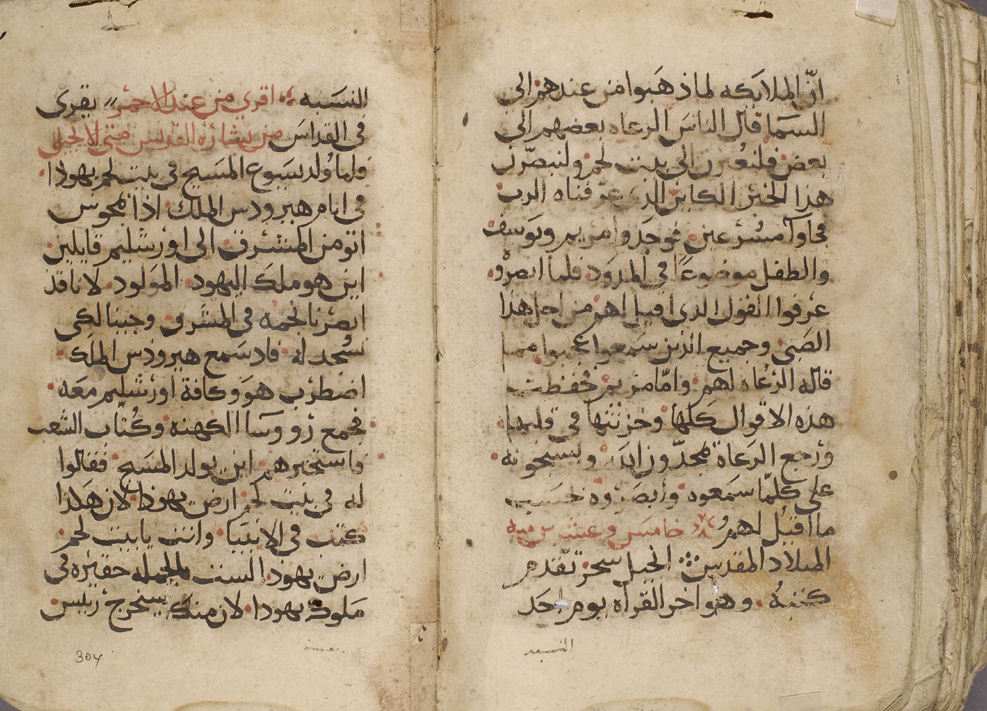 انّ الملايكه لما ذهبوا من عندهم الى
السما قال الناس الرعاه بعضهم الى
بعض فلنعبرن الى بيت لحم ولنبصرن
هذا الخبر الكاين الذي عرّفناه الرب
فجاوا مسرعين فوجدوا مريم ويوسف
والطفل موضوعاً في المدود فلما ابصرو
عرفوا القول الذي اقيل لهم من اجل هذا
الصبي وجميع الذين سمعوا عجبوا مما
قاله الرعاه لهم وامّا مريم فحفظت
هذه الاقوال كلها وخزنتها في قلبها
ورجع الرعاة يمجدّون الله ويسبحونه
على كلّما سمعوه وابصروه حسب
ما اقيل لهم خامس وعشرين منه
الميلاد المقدس انجيل سحر تقدم
كتبهُ وهو اخر القراه يوم احد
النسبه
النسبه اقرى من عند الاحمر يقرى
في القداس من بشارة القديس متى الانجيلي
فلما ولد يسوع المسيح في بيت لحم يهودا
في ايام هيرودس الملك اذا مجوس
اتو من المشرق الى اورشليم قايلين
اين هو ملك اليهود المولود لانا قد
ابصرنا نجمه في المشرق وجينا لكي
نسجد له فاد سمع هيرودس الملك
اضطرب هو وكافة اورشليم معه
فجمع رووسا الكهنه وكُتاب الشعب
واستخبرهم اين يولد المسيح فقالوا
له في بيت لحم ارض يهودا لان هكذا
كتب في الانبيا وانت يا بيت لحم
ارض يهودا لست بالجمله حقيره في
ملوك يهودا لان منك يخرج رييس
304